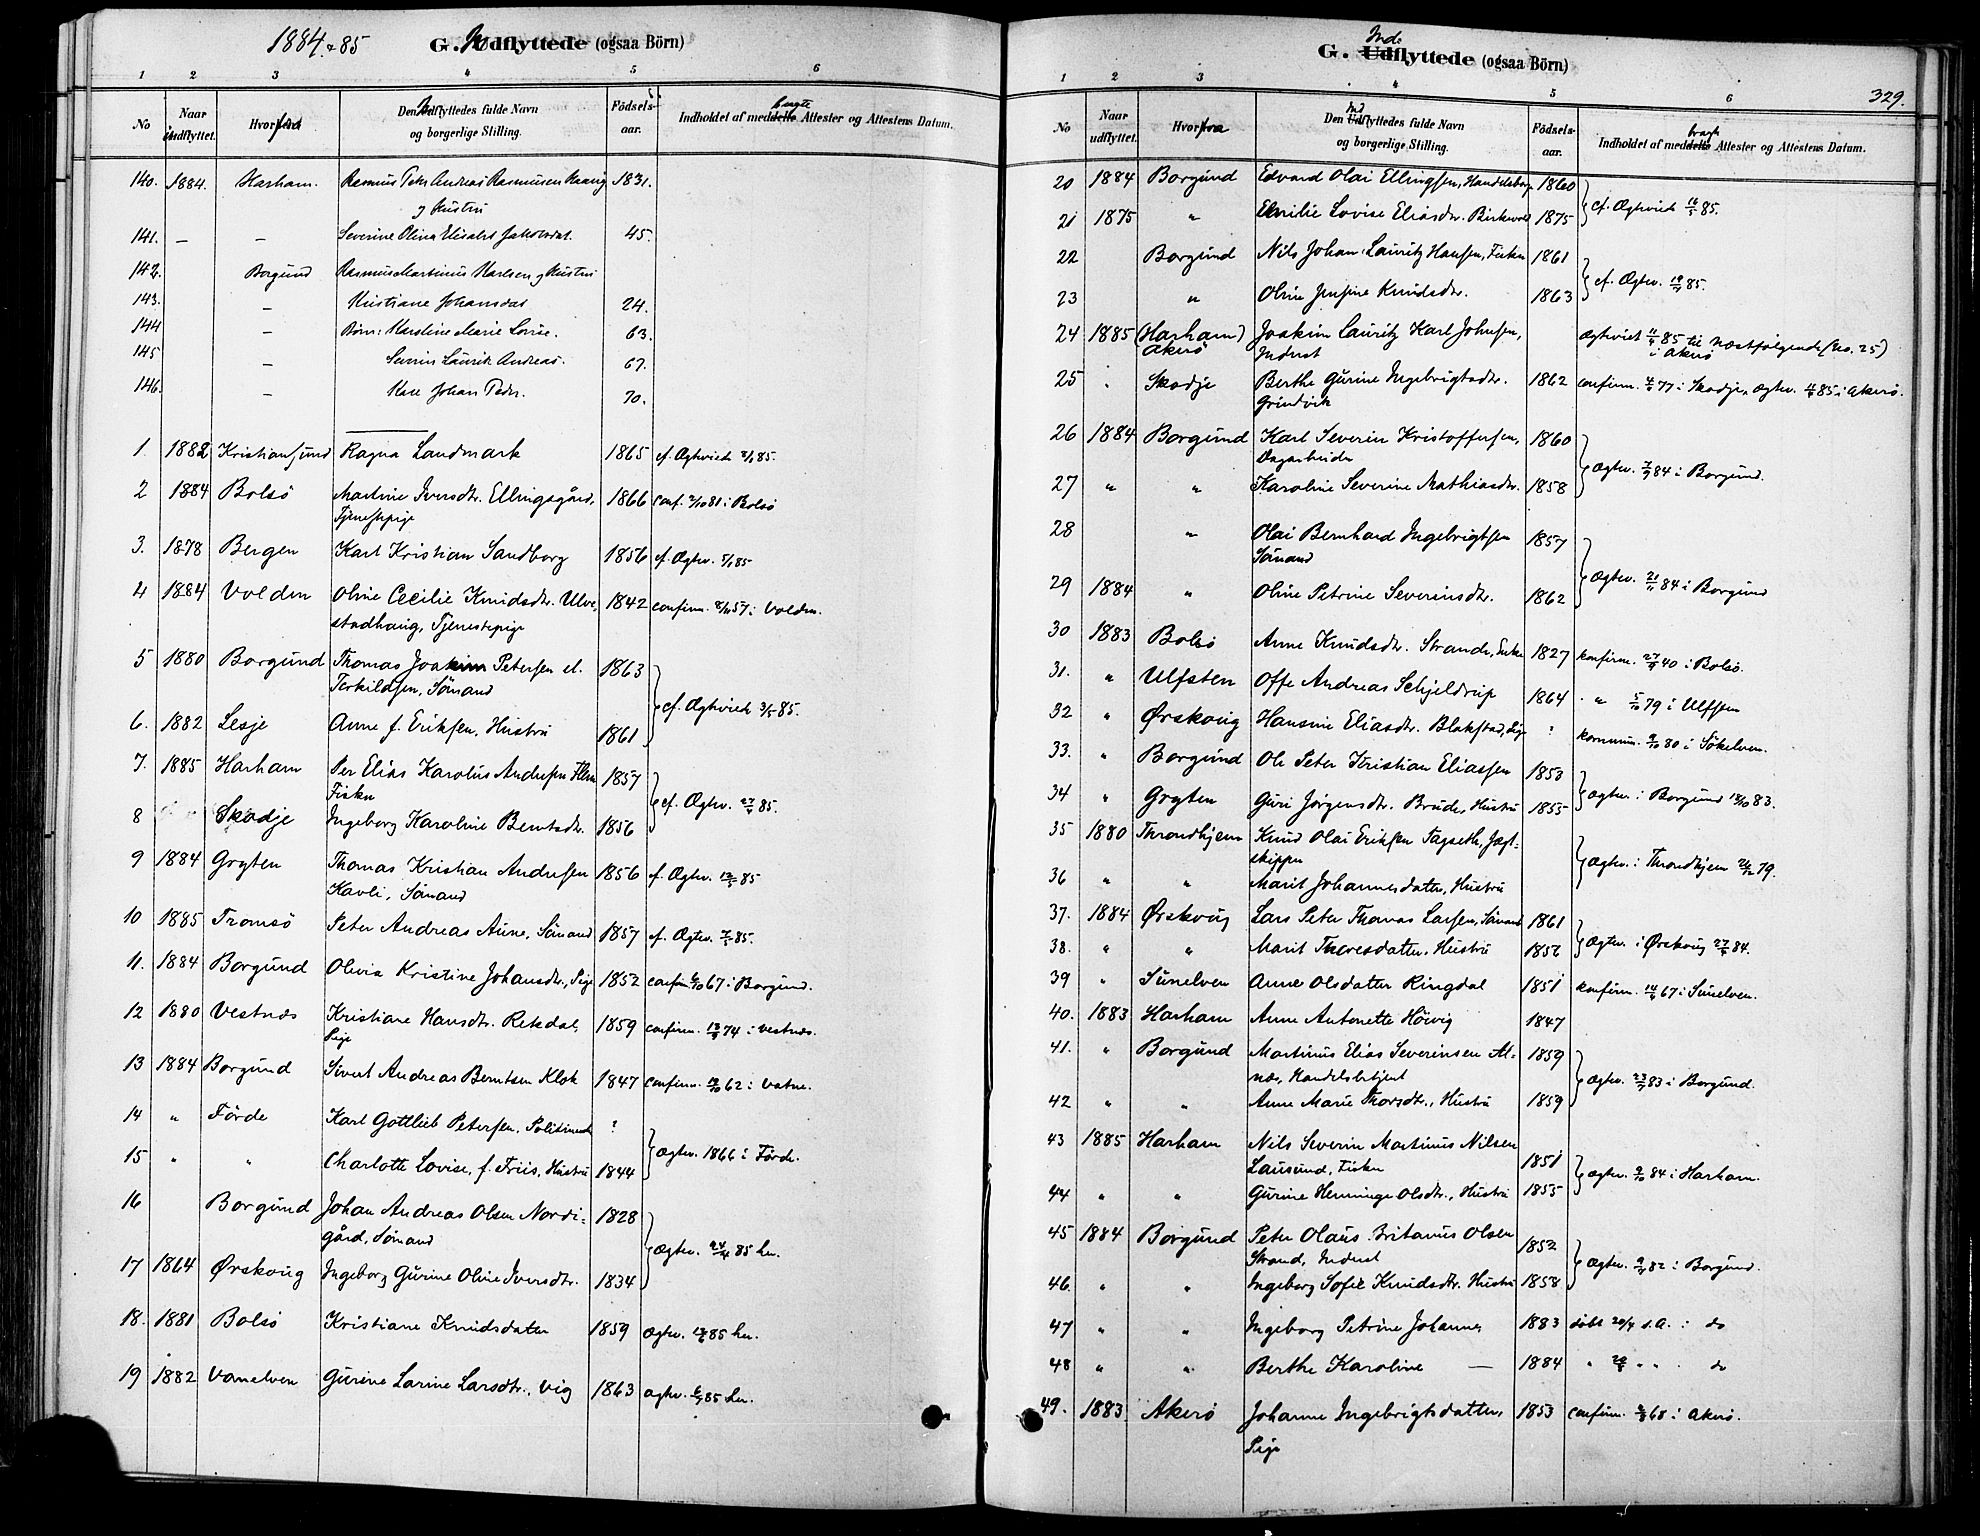 1884 & 85 G. Indflyttede (ogsaa Börn)
1 2 3 4 5 6
No Naar indflyttet. Hvorfra Den Indflyttedes fulde Navn og borgerlige Stilling. Födsels-aar. Indholdet af medbragte Attester og Attestens Datum.
140. 1884. Harham. Rasmus Peter Andreas Rasmusen 1831.
og Hustru
141. — — Severine Olina 45.
142. Borgund Rasmus Martinus Karlsen og Hustru
143. — Kristiane Johansdat 24.
144 — Börn: Karoline Marie Lovise. 63.
145 — Severin Laurik Andreas. 67.
146. — Johan Peder. 70.
1. 1882 Kristiansund Ragna Landmark 1865 cf. Ægtevied 85.
2 1884 Bolsö Martine Iversdtr. Ellingsgård, 1866 conf. 2/10 81 i Bolsö
Tjenestepige
3. 1878 Bergen Karl Kristian Sandborg 1856 cf. Ægtev. 5/1 85
4 1884 Volden Oline Cecilie Knudsdtr. Ulve- 1842 confirm. 57 i Volden.
stadhaug, Tjenestepige
5 1880 Borgund Thomas Joakim Petersen el. 1863
Terkildsen, Sömand
cf. Ægtevied 3/5 85.
6. 1882 Lesje Anne f. Eriksen, Hustru 1861
7. 1885 Harham Per Elias Karolus Andersen 1857
Fisker
cf. Ægtev. 27/4 85.
8 Skodje Ingeborg Karoline Berntsdtr. 1856
9 1884 Gryten Thomas Kristian Andersen 1856 cf. Ægtev. 12/5 85
Kavli, Sömand
10 1885 Tromsö Peter Andreas Aune, Sömand 1857 cf. Ægtev. 7/5 85.
11. 1884 Borgund Olivia Kristine Johansdtr., Pige 1852 confirm 6/10 67 i Borgund.
12 1880 Vestnæs Kristiane Hansdtr. Rekdal, 1859 confirm. 13/9 74 i Vestnæs.
Pige
13 1884 Borgund Sivert Andreas Berntsen Klok 1847 confirm. 12/10 62 i Vatne.
14 " Förde Karl Gottlieb Petersen, Politimester ?
Ægtev. 1866 i Förde.
15 " " Charlotte Lovise, f. Friis, Hustru 1844
16 Borgund Johan Andreas Olsen Nordi- 1828
gård, Sömand
Ægtev. 24/4 85 her.
17 1864 Ørskoug Ingeborg Gurine Oline Iversdtr. 1834
18. 1881 Bolsö Kristiane Knudsdatter 1859 Ægtev. 85 her.
19 1882 Vanelven Gurine Larine Larsdtr., Vig 1863 Ægtev. 85 her.
G. Indflyttede (ogsaa Börn)
329.
1 2 3 4 5 6
No Naar udflyttet. Hvorfra Den Indflyttedes fulde Navn og borgerlige Stilling. Födsels-aar. Indholdet af medbragte Attester og Attestens Datum.
20 1884 Borgund Edvard Olai Ellingsen, Handelsborg. 1860
cf. Ægtevied 16/5 85.
21 1875 " Emilie Lovise Eliasdtr. Birkevold 1875
22 Borgund Nils Johan Lauritz Hansen, Fisker 1861
cf. Ægtev. 85.
23 " Oline Jensine Knudsdtr. 1863
24 1885 (Harham) Akerö Joakim Lauritz Karl Johnsen, Ægteviet 85 til næstfølgende (No. 25)
Inderst i Akerö
25 Skodje Berthe Gurine Ingebrigtsdtr. 1862 confirm. 77 i Skodje, Ægtev. 85 i Akerö.
Grindvik
26 1884 Borgund Karl Severin Kristoffersen, 1860
Dagarbeider
Ægtev. 84 i Borgund.
27 " " Karoline Severine Mathiasdtr. 1858
28 " Olai Bernhard Ingebrigtsen 1857
Sömand
Ægtev. 21/11 84 i Borgund
29 1884 " Oline Petrine Severinsdtr. 1862
30 1883 Bolsö Anne Knudsdtr. Strande, Enke 1827 konfirm. 27/9 40 i Bolsö.
31. " Ulfsten Offe Andreas Schjeldrup 1864 " 5/10 79 i Ulfsten
32 " Ørskoug Hansine Eliasdtr. Blakstad, Pige ? kommun. 80 i Sökelven.
33. " Borgund Ole Peter Kristian Eliassen 1853
Ægtev. i Borgund 18/10 83.
34 " Gryten Guri Jörgensdtr. Brude, Hustru 1855
35 1880 Throndhjem Knud Olai Eriksen Tagseth, Jægt-
skipper
Ægtev. i Throndhjem 79.
36 " " Marit Johannesdatter, Hustru
37. 1884 Ørskoug Lars Peter Thomas Larsen, Sömand 1861
Ægtev. i Ørskoug 27/ 84.
38. " " Marit Thoresdatter, Hustru 1856
39 " Sunelven Anne Olsdatter Ringdal 1851 konfirm. 14/ 67 i Sunelven.
40. 1883 Harham Anne Antonette Höivig 1847
41. " Borgund Martinus Elias Severinsen Al- 1859
næs, Handelsbetjent
Ægtev. 23/ 83 i Borgund.
42 " " Anne Marie Thorsdtr., Hustru 1859
43 1885 Harham Nils Severin Martinus Nilsen
Lausund, Fisker 1851
Ægtev. 84 i Harham.
44 " " Gurine Henninge Olsdtr., Hustru 1855
45 1884 Borgund Peter Olaus Britanus Olsen
Strand, Inderst 1852
Ægtev. 82 i Borgund.
46. " " Ingeborg Sofie Knudsdtr. Hustru 1858
47 " " Ingeborg Petrine Johanne 1883 döbt 20/4 s. A. i do
48 " " Berthe Karoline — 1884 " " " do
49. 1883 Akerö Johanne Ingebrigtsdatter, 1853 confirm. 68 i Akerö.
Pige